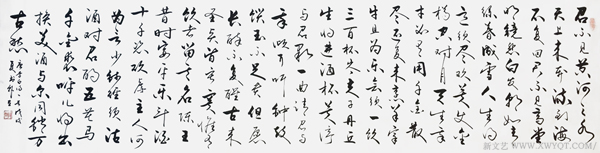 君不见黄河之水
天上来奔流到海
不复回君不见高堂
明镜悲白发朝如青
丝暮成雪人生得
意须尽欢莫使金
樽空对月天生我
材必有用千金散
尽还复来烹羊宰
牛且为乐会须一饮
三百杯岑夫子丹丘
生将进酒杯莫停
与君歌一曲请君为
我
钟鼓
馔玉不足贵但愿
长醉不复醒古来
圣贤皆寂寞惟有
饮者留其名陈王
昔时宴平乐斗酒
十千恣欢谑主人何
为言少钱径须沽
酒对君酌五花马
千金裘呼儿将出
换美酒与尔同销万
古愁
新文艺 WWW.XWYQT.COM